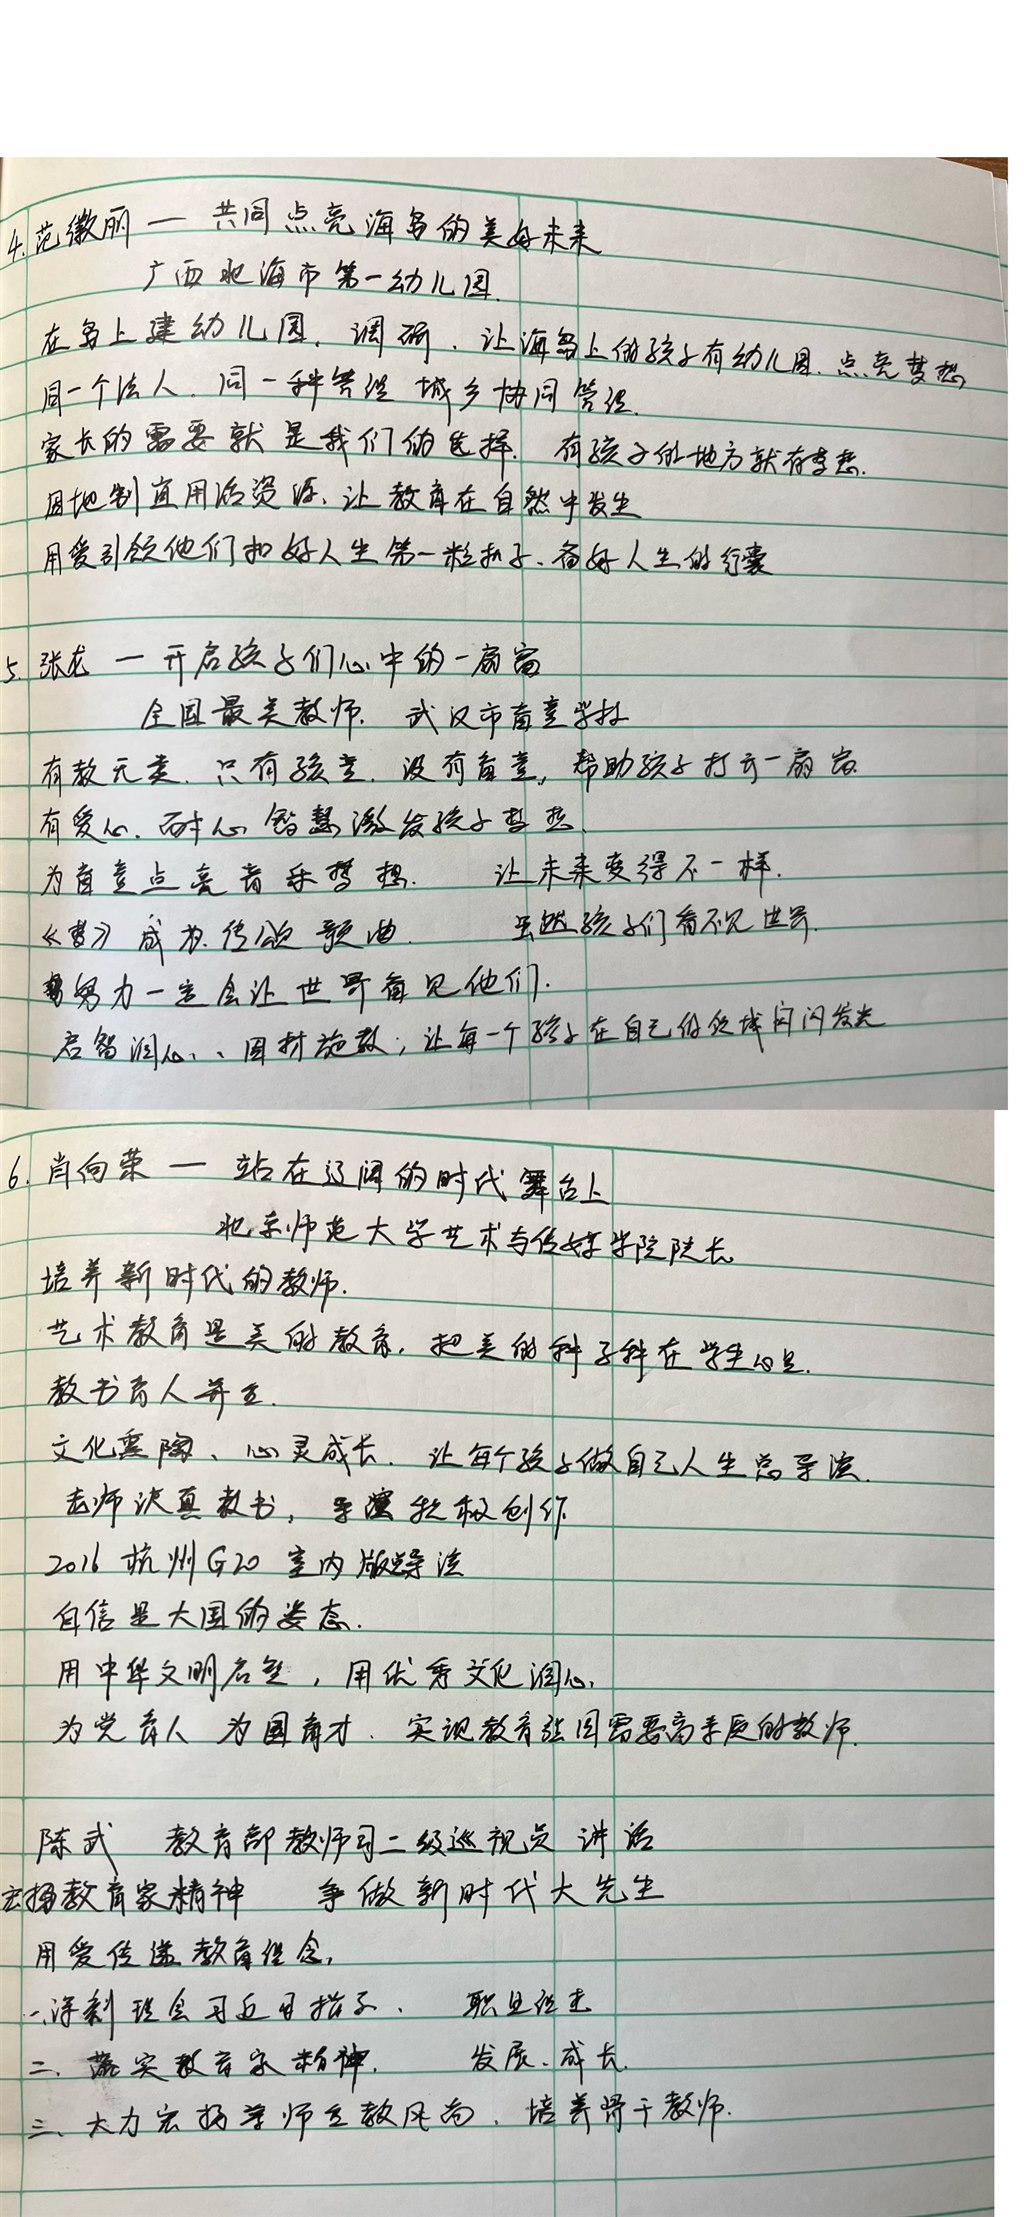 4.范徽丽 一 共同点亮海岛的美好未来
广西北海市第一幼儿园.
在岛上建幼儿园. 调研. 让海岛上的孩子有幼儿园. 点亮梦想
同一个法人. 同一种管理 城乡协同管理.
家长的需要就是我们的选择. 有孩子的地方就有梦想.
因地制宜用活资源、让教育在自然中发生
用爱引领他们扣好人生第一粒扣子、备好人生的行囊
5. 张龙 一 开启孩子们心中的一扇窗
全国最美教师. 武汉市盲童学校
有教无类. 只有孩童. 没有盲童, 帮助孩子打开一扇窗.
有爱心. 耐心 智慧激发孩子梦想.
为盲童点亮音乐梦想. 让未来变得不一样.
《梦》成为传颂歌曲. 虽然孩子们看不见世界.
努力一定会让世界看见他们.
启智润心、、因材施教; 让每一个孩子在自己的领域闪闪发光
6. 肖向荣 一 站在辽阔的时代舞台上
北京师范大学艺术与传媒学院院长
培养新时代的教师.
艺术教育是美的教育, 把美的种子种在学生心里.
教书育人并立.
文化熏陶、心灵成长. 让每个孩子做自己人生总导演.
老师认真教书, 导演积极创作
2016 杭州G20 室内版总导演
自信是大国的姿态.
用中华文明启智, 用优秀文化润心.
为党育人 为国育才. 实现教育强国需要高素质的教师.
陈武 教育部教师司二级巡视员 讲话
弘扬教育家精神 争做新时代大先生
用爱传递教育信念,
一、深刻领会习近目指示. 职业信走
二、落实教育家精神. 发展、成长.
三、大力宏扬尊师重教风尚. 培养骨干教师.